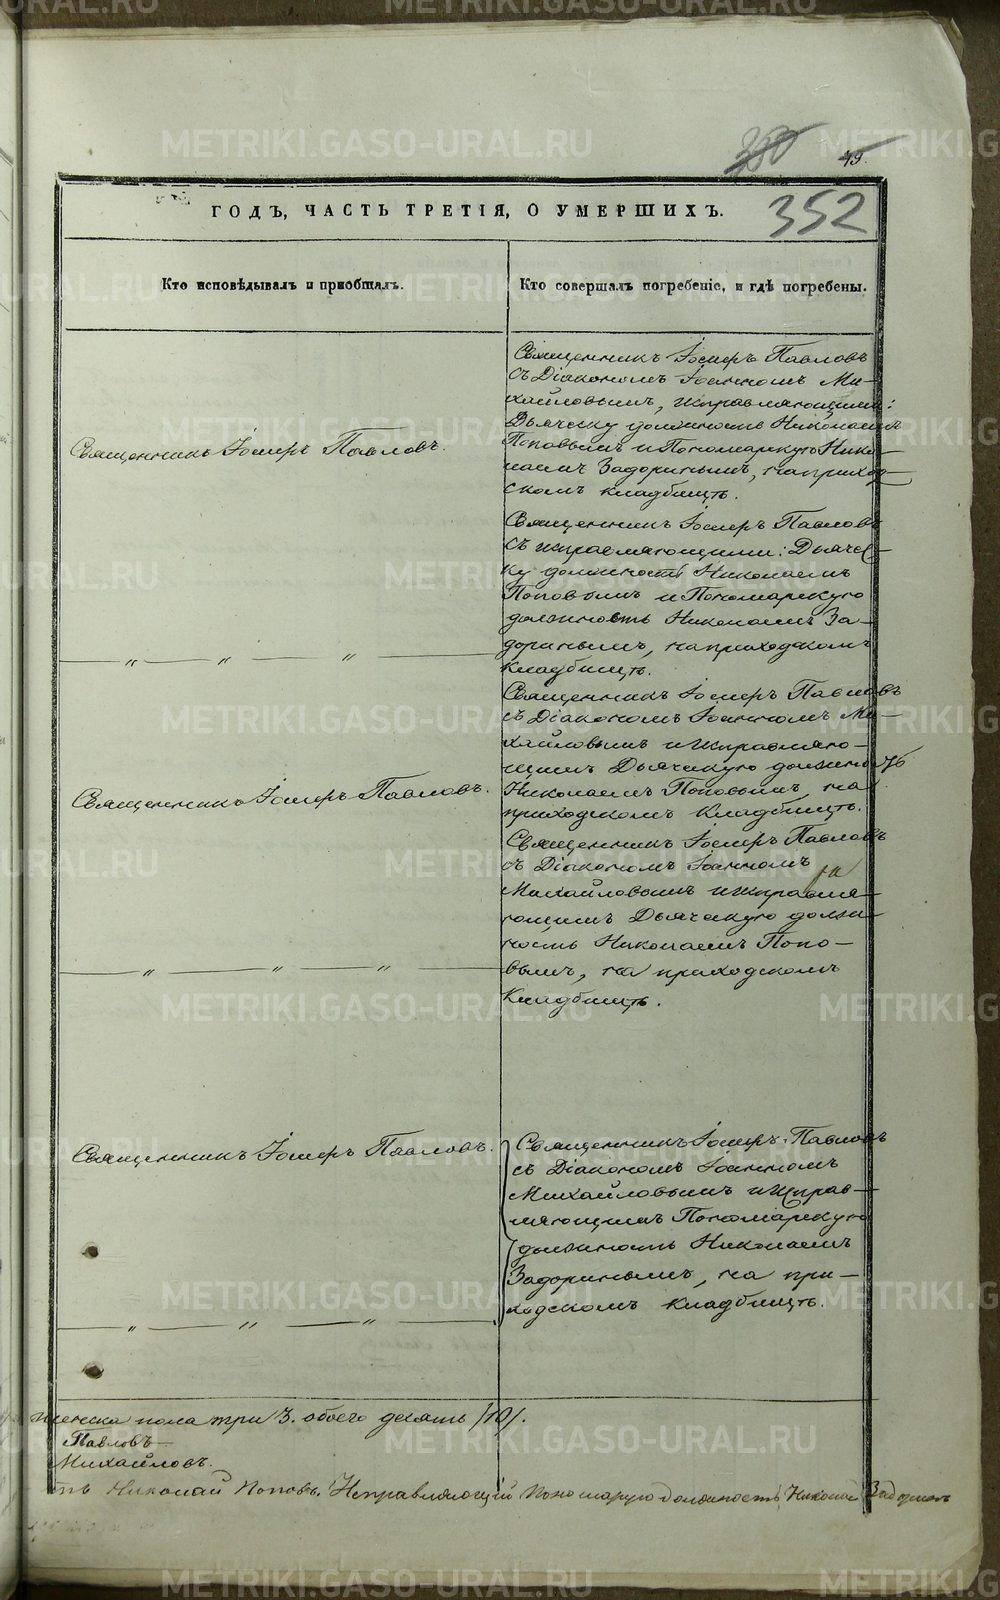 METRIKI.GASO-URAL.RU
350
49.
352
ГОДЪ, ЧАСТЬ ТРЕТІЯ, О УМЕРШИХЪ.
Кто исповѣдывалъ и приобщалъ.
Кто совершалъ погребеніе, и гдѣ погребены.
Священникъ Іосифъ Павловъ.
Священникъ Іосифъ Павловъ
съ Діакономъ Іоанномъ Ми-
хайловымъ, исправляющими:
Дьячску должность Николаемъ
Поповымъ и Пономарскую Нико-
лаемъ Задоринымъ, на приход-
скомъ кладбищѣ.
— „ — „ — „ —
Священникъ Іосифъ Павловъ
съ исправляющими: Дьячс-
ку должность Николаемъ
Поповымъ и Пономарскую
должность Николаемъ За-
доринымъ, на приходскомъ
кладбищѣ.
Священникъ Іосифъ Павловъ.
Священникъ Іосифъ Павловъ
съ Діакономъ Іоанномъ Ми-
хайловымъ и исправляю-
щимъ Дьячскую должность
Николаемъ Поповымъ, на
приходскомъ кладбищѣ.
— „ — „ — „ —
Священникъ Іосифъ Павловъ
съ Діакономъ Іоанномъ
Михайловымъ и исправля-
ющимъ Дьячскую долж-
ность Николаемъ Попо-
вымъ, на приходскомъ
кладбищѣ.
Священникъ Іосифъ Павловъ.
Священникъ Іосифъ Павловъ
съ Діакономъ Іоанномъ
Михайловымъ и исправ-
ляющимъ Пономарскую
должность Николаемъ
Задоринымъ, на при-
ходскомъ кладбищѣ.
— „ — „ — „ —
женска пола три 3. обоего десять /10/.
Павловъ
Михайловъ.
ть Николай Поповъ. Исправляющій Пономарскую должность Николай Задоринъ